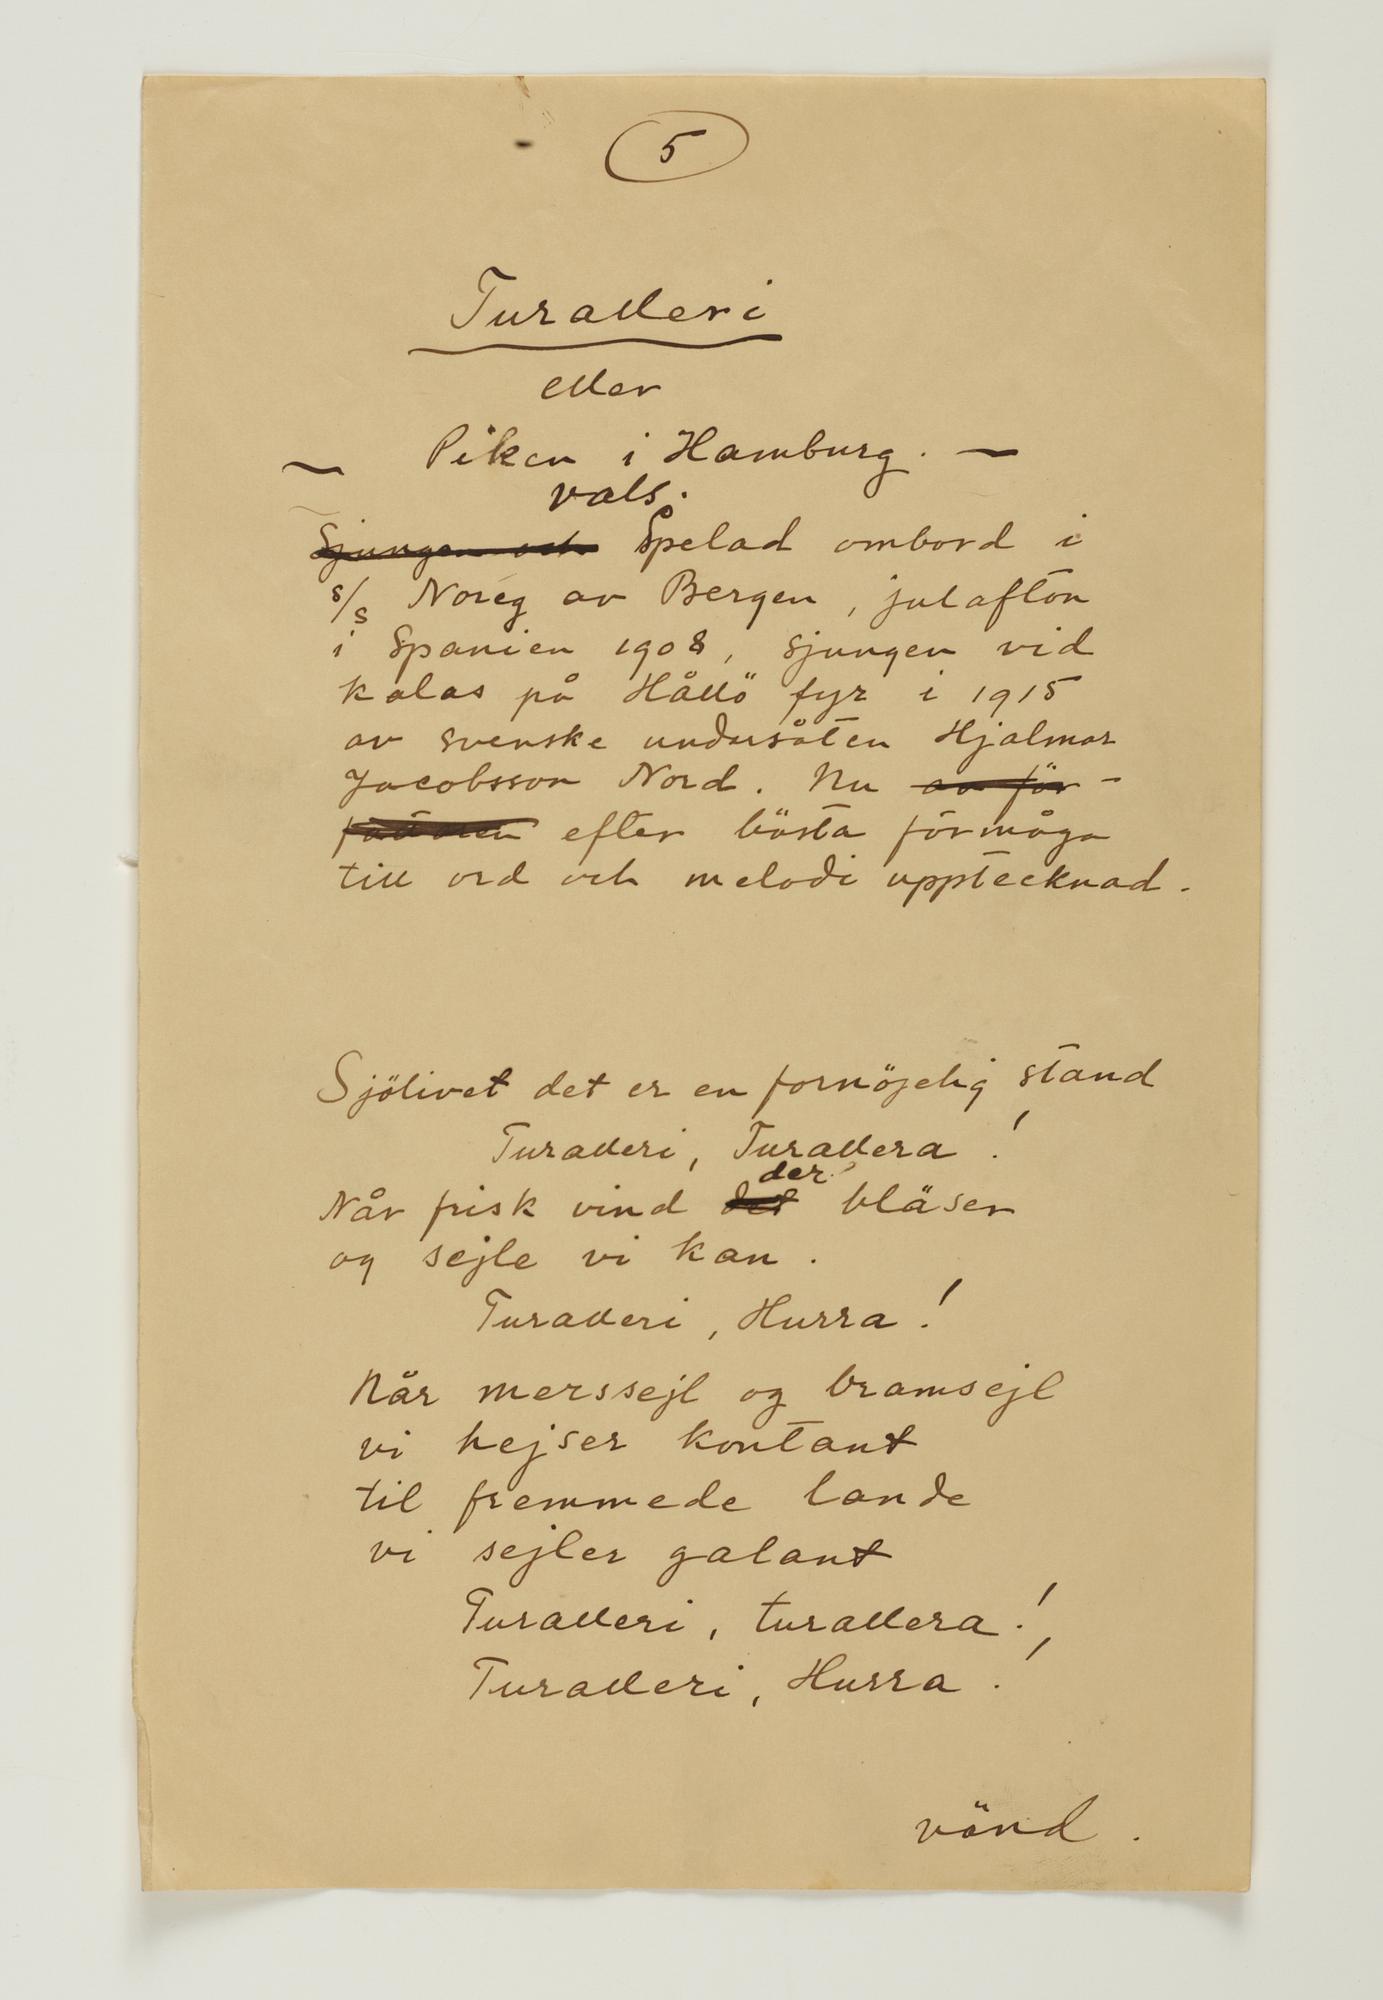 5
Turalleri
eller
~ Piken i Hamburg. ~
vals.
Sjungen och Spelad ombord i
s/s Noreg av Bergen, julafton
i Spanien 1908, sjungen vid
kalas på Hållö fyr i 1915
av svenske undersåten Hjalmar
Jacobsson Nord. Nu av för-
fattaren efter bästa förmåga
till ord och melodi upptecknad.
Sjölivet det er en fornöjelig stand
Turalleri, Turallera!
der
Når frisk vind det bläser
og sejle vi kan.
Turalleri, Hurra!
Når merssejl og bramsejl
vi hejser kontant
til fremmede lande
vi sejler galant
Turalleri, turallera!
Turalleri, Hurra!
vänd.